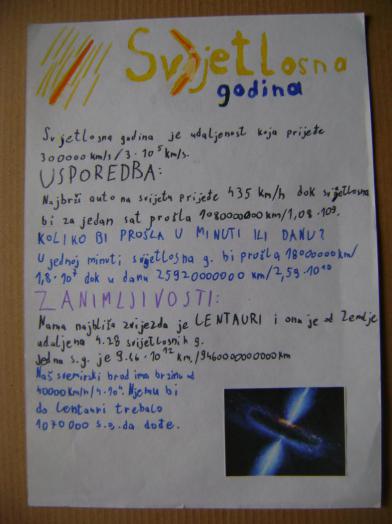 Svjetlosna
godina
Svjetlosna godina je udaljenost koja prijeđe
300000 km/s / 3·10⁵ km/s.
USPOREDBA:
Najbrži auto na svijetu prijeđe 435 km/h dok svjetlosna
bi za jedan sat prošla 1080000000 km/1,08·10⁹.
KOLIKO BI PROŠLA U MINUTI ILI DANU?
U jednoj minuti svjetlosna g. bi prošla 18000000 km/
1,8·10⁷ dok u danu 25920000000 km/2,59·10¹⁰
ZANIMLJIVOSTI:
Nama najbliža zvijezda je LENTAURI i ona je od Zemlje
udaljena 4.28 svijetlosnih g.
Jedna s.g. je 9.46·10¹² km/9460000000000 km
Naš svemirski brod ima brzinu od
40000 km/h/4·10⁴. Njemu bi
do Lentauri trebalo
1070000 s.g. da dođe.